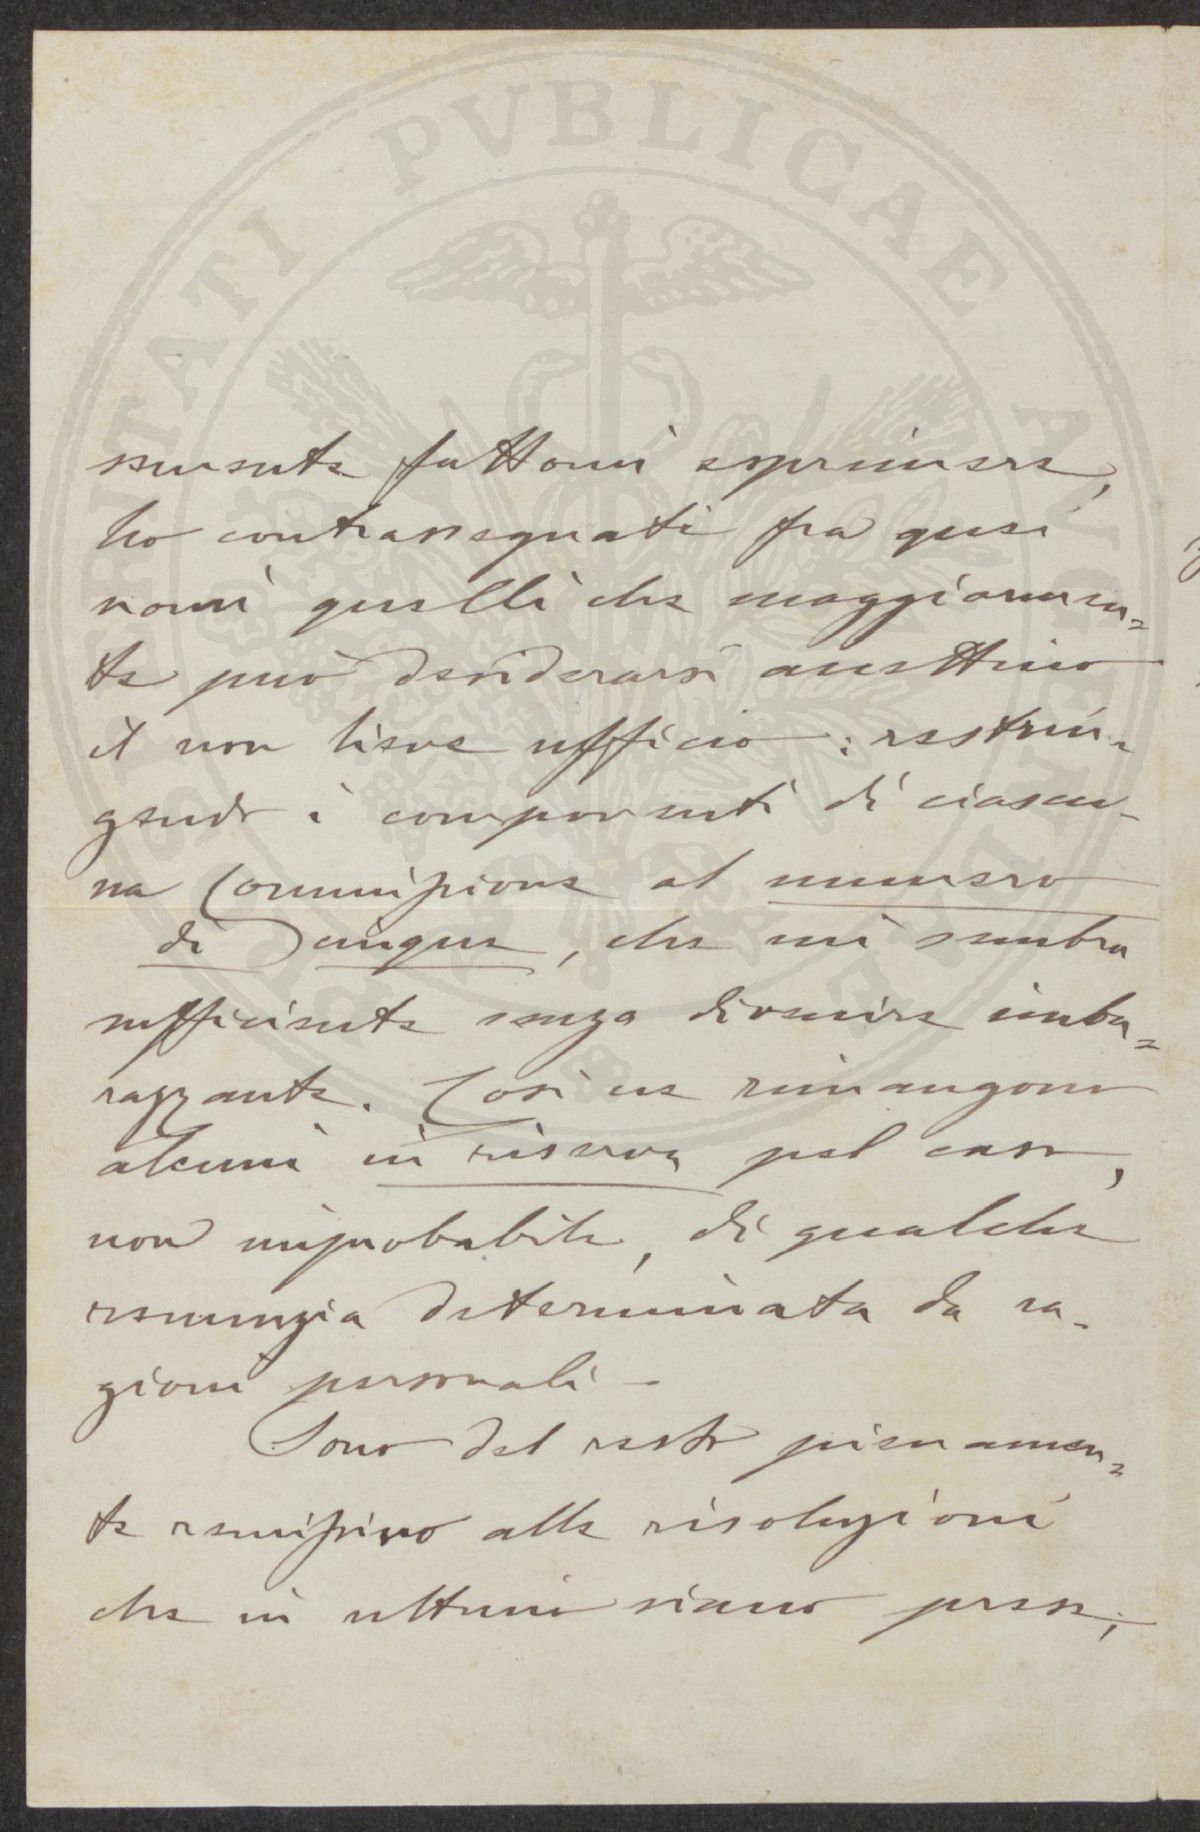 PVBLICAE
mente fattomi esprimere,
ho contrassegnati fra quei
nomi quelli che maggiormen=
te può desiderarsi accettino
il non lieve ufficio: restrin=
gendo i componenti di ciascu-
na Commissione al numero
di cinque, che mi sembra
sufficiente senza divenire imba=
razzante. Così ne rimangono
alcuni in riserva pel caso,
non improbabile, di qualche
renunzia determinata da ra-
gioni personali -
Sono del resto pienamen=
te remissivo alle risoluzioni
che in ultimo siano prese,